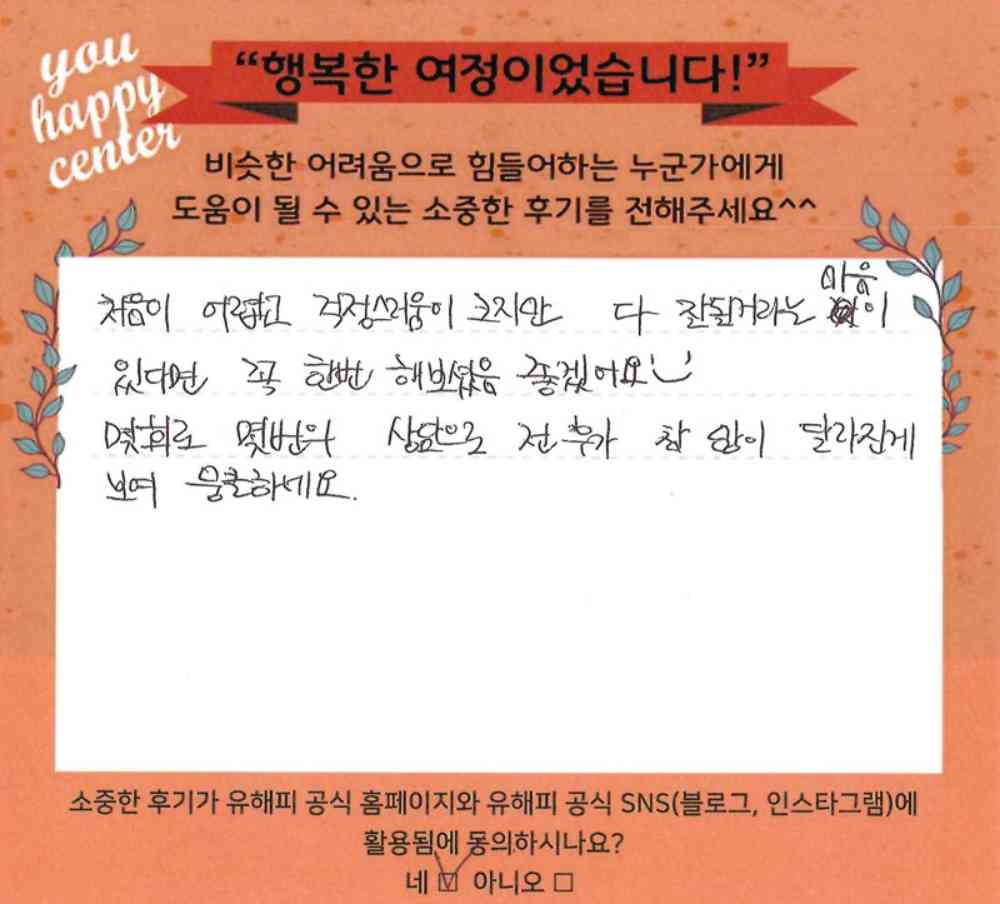 you
happy
center
“행복한 여정이었습니다!”
비슷한 어려움으로 힘들어하는 누군가에게
도움이 될 수 있는 소중한 후기를 전해주세요^^
처음이 어렵고 걱정스러움이 크지만 다 잘될거라는 마음이
있다면 꼭 한번 해보셨음 좋겠어요
몇회로 몇번의 상담으로 전 후가 참 많이 달라진게
보여 뭉클하네요.
소중한 후기가 유해피 공식 홈페이지와 유해피 공식 SNS(블로그, 인스타그램)에
활용됨에 동의하시나요?
네 ☑ 아니오 □